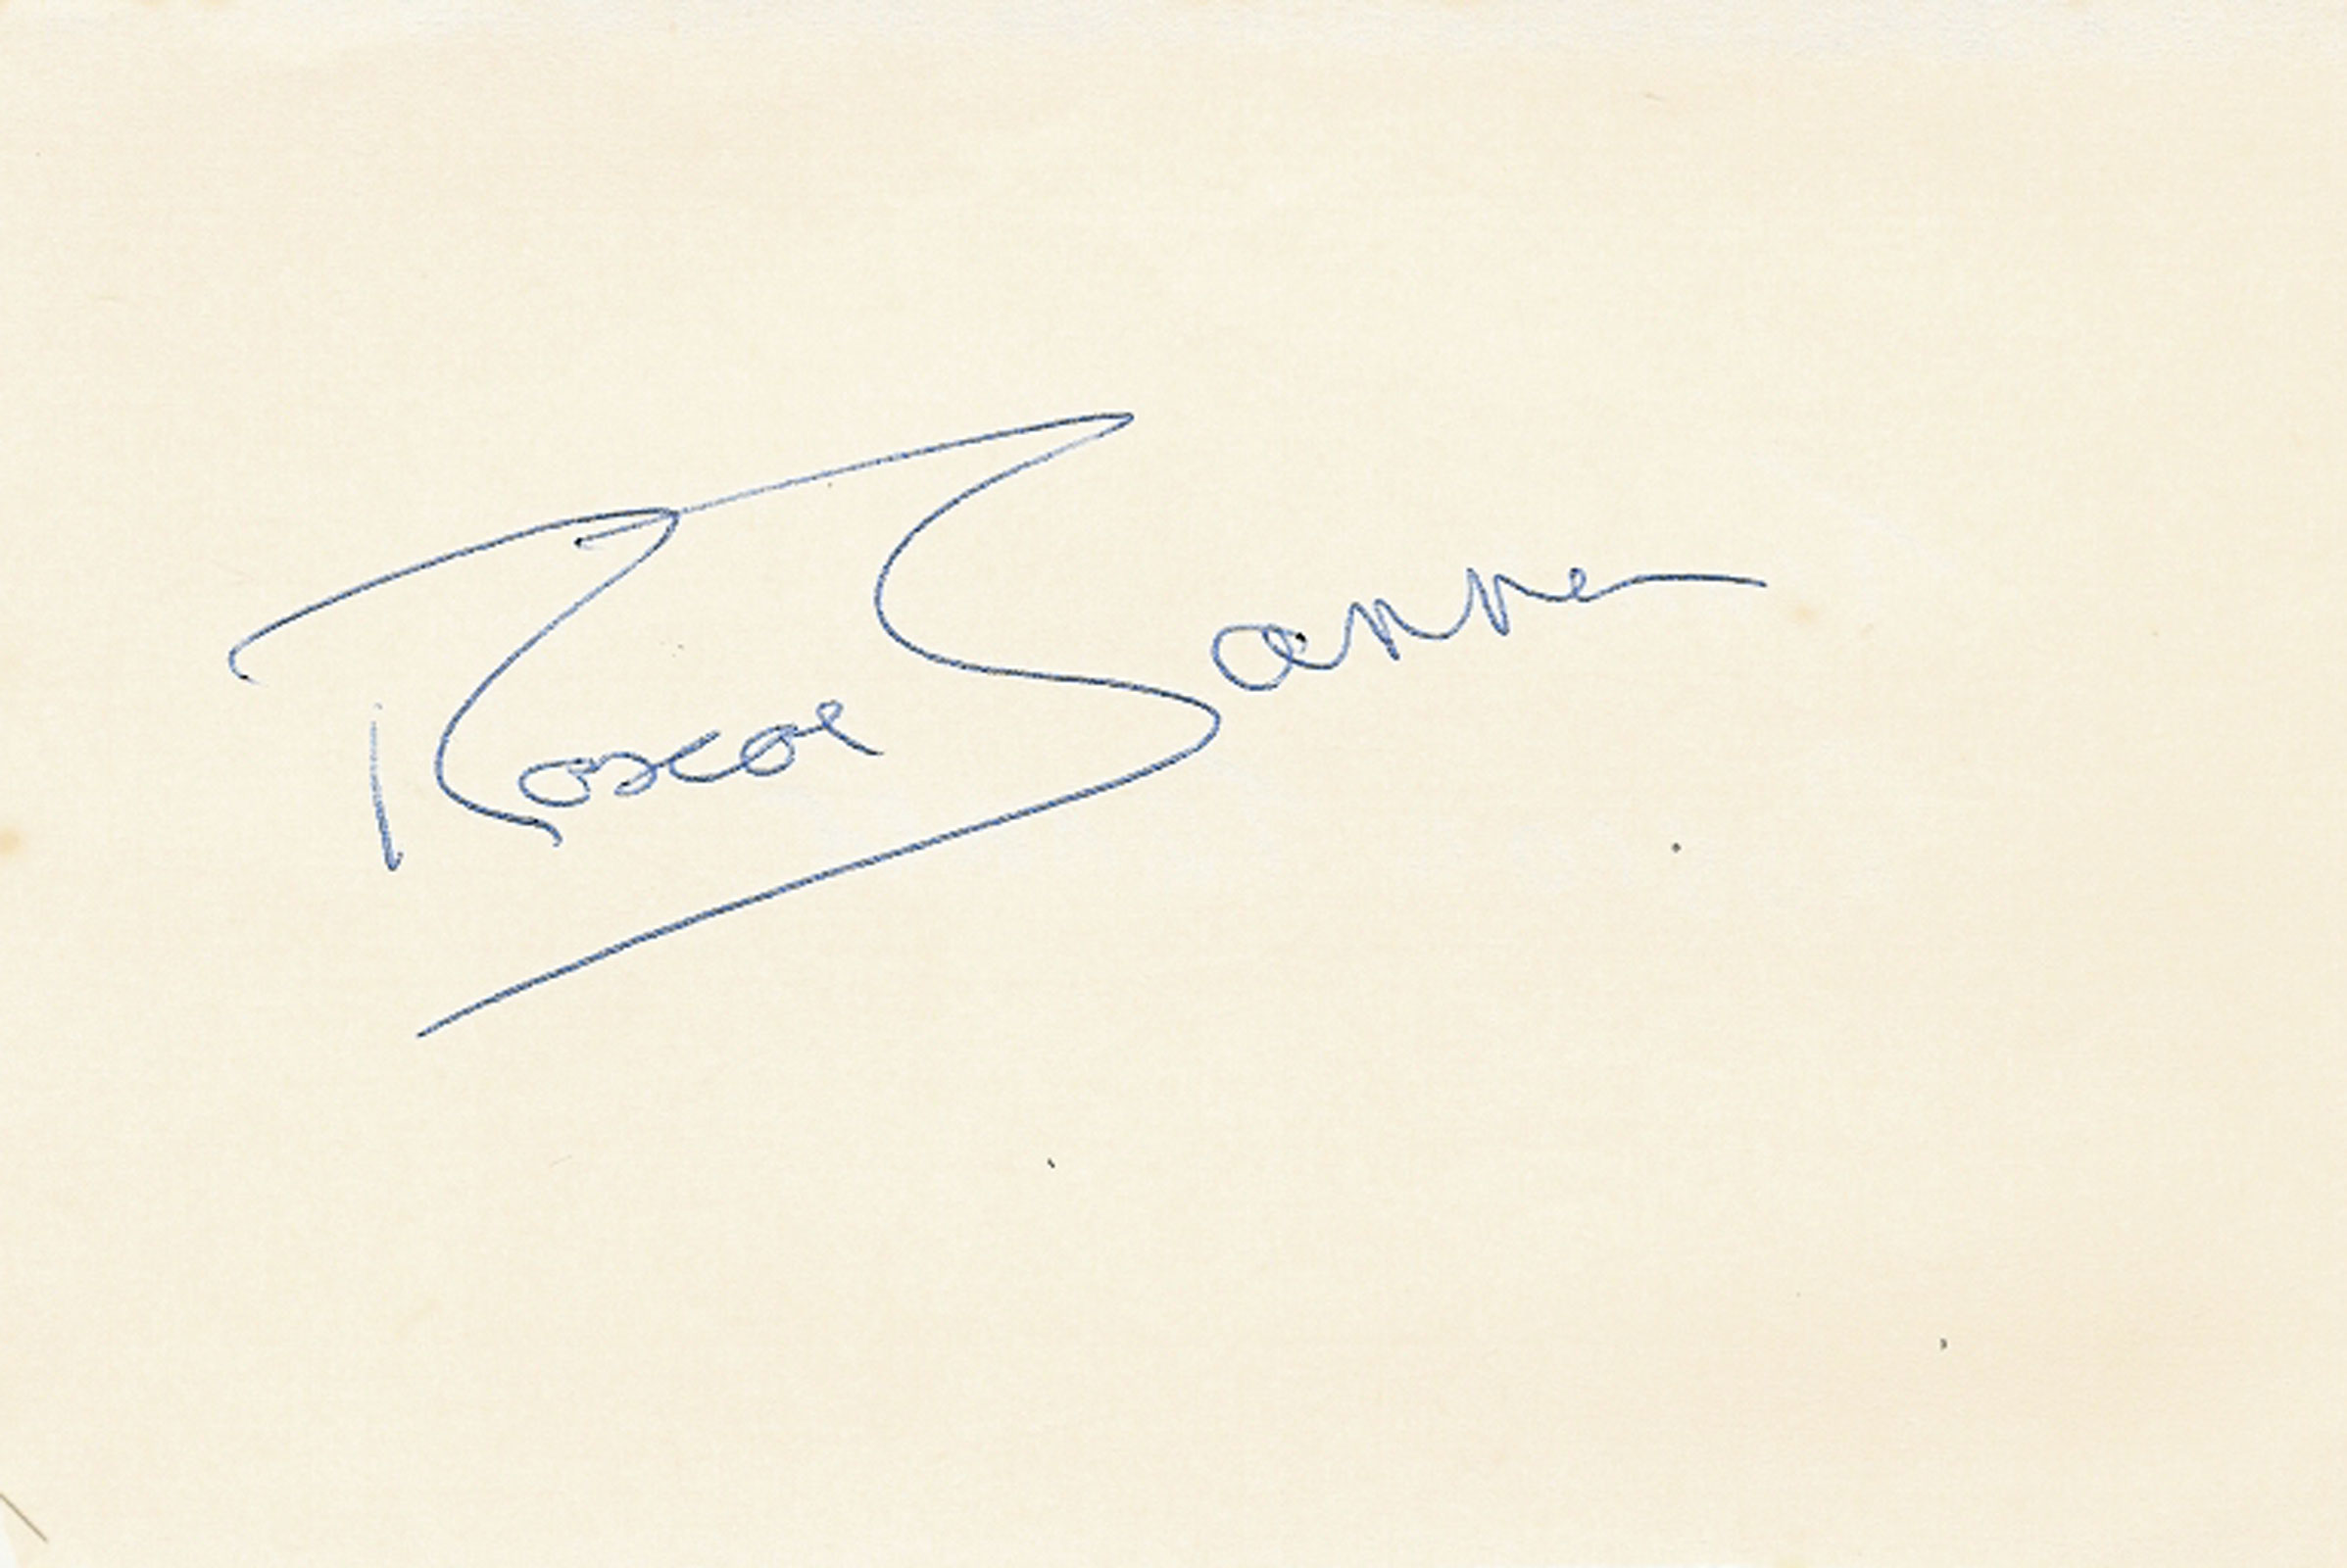 Roscoe Tanner